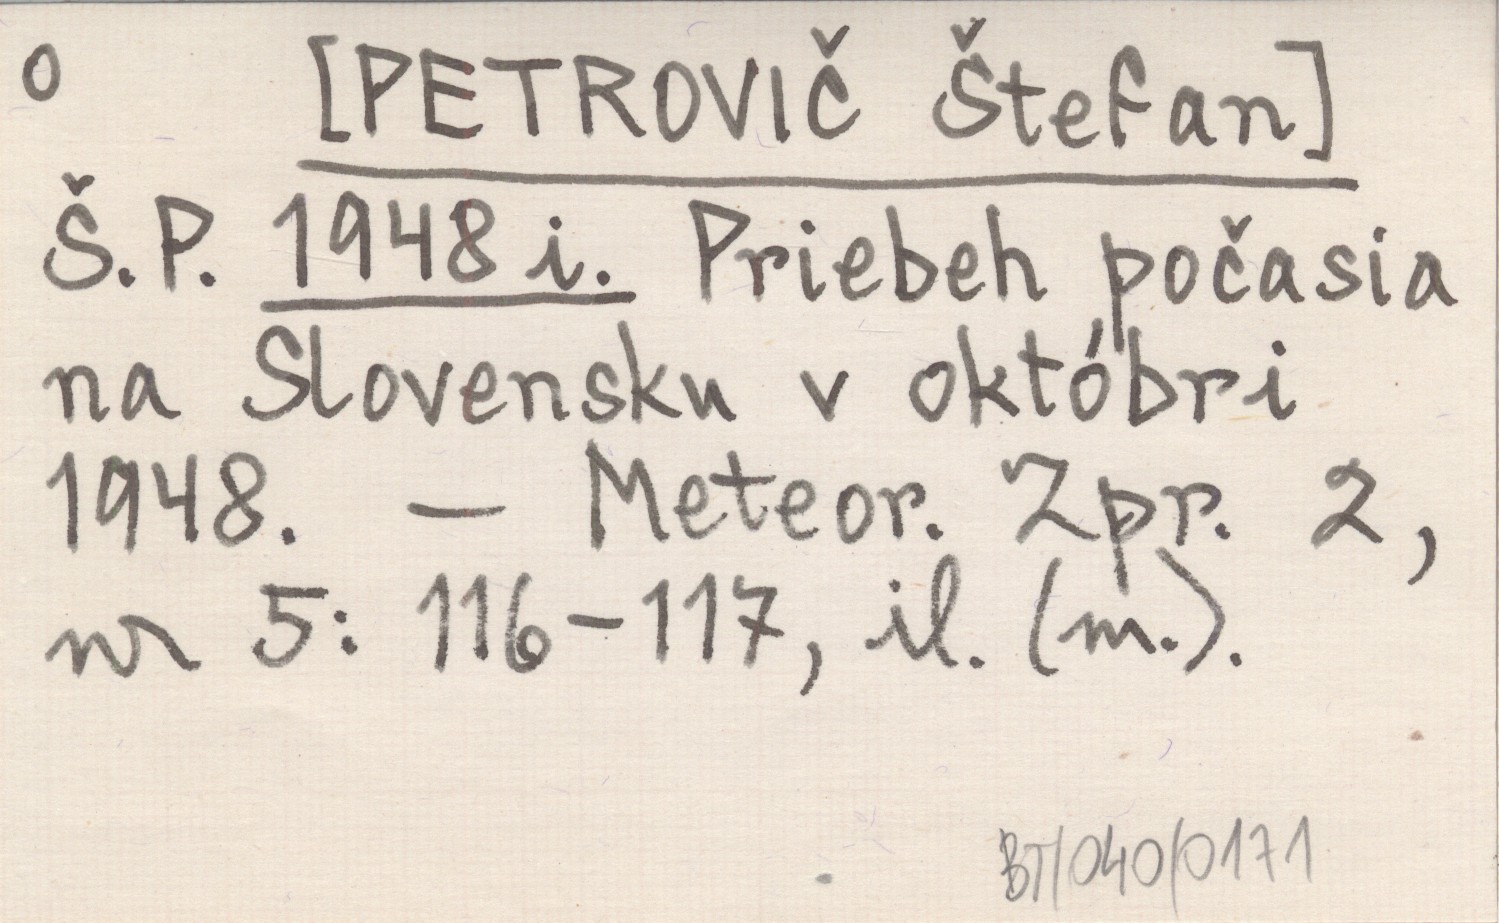 o [PETROVIČ Štefan]
Š.P. 1948 i. Priebeh počasia
na Slovensku v októbri
1948. — Meteor. Zpr. 2,
nr 5: 116-117, il. (m.).
BT/040/0171